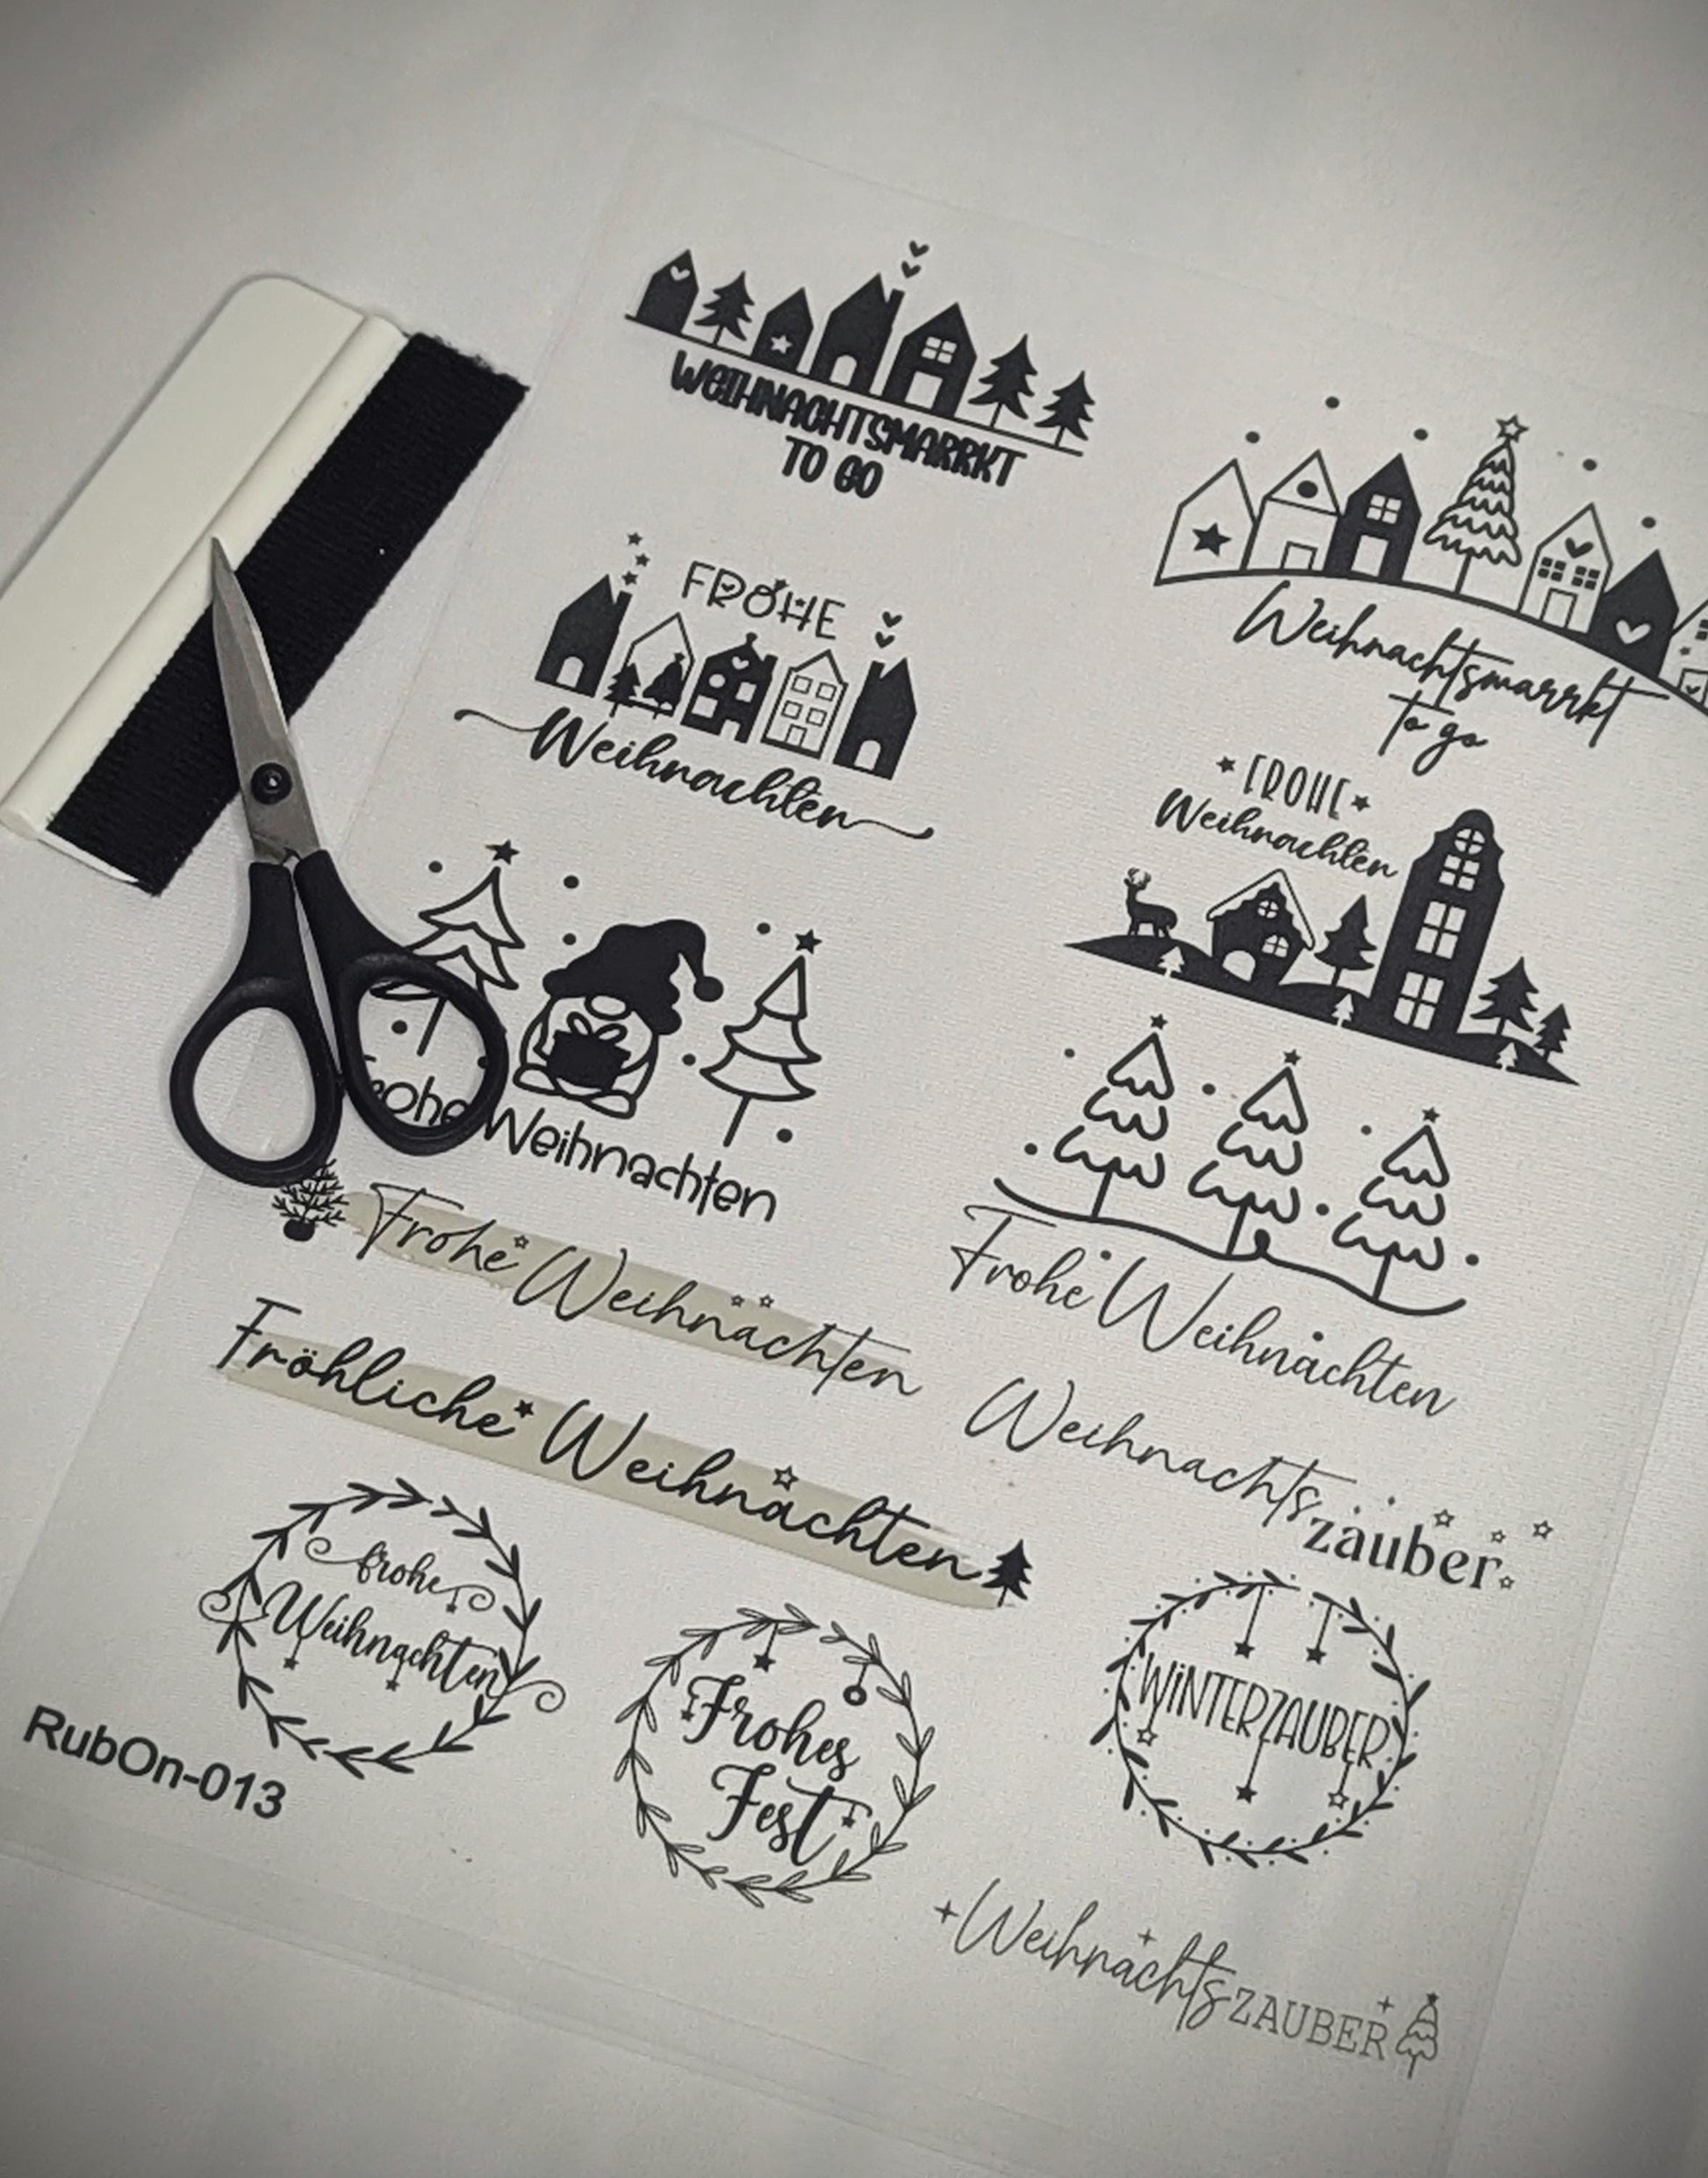 WEIHNACHTSMARRKT
TO GO
Weihnachtsmarrkt
to go
FROHE
Weihnachten
FROHE
Weihnachten
ohe Weihnachten
Frohe Weihnachten
Frohe Weihnachten
Fröhliche Weihnachten
Weihnachts
zauber
frohe
Weihnachten
Frohes
Fest
WINTERZAUBER
RubOn-013
WeihnachtsZAUBER